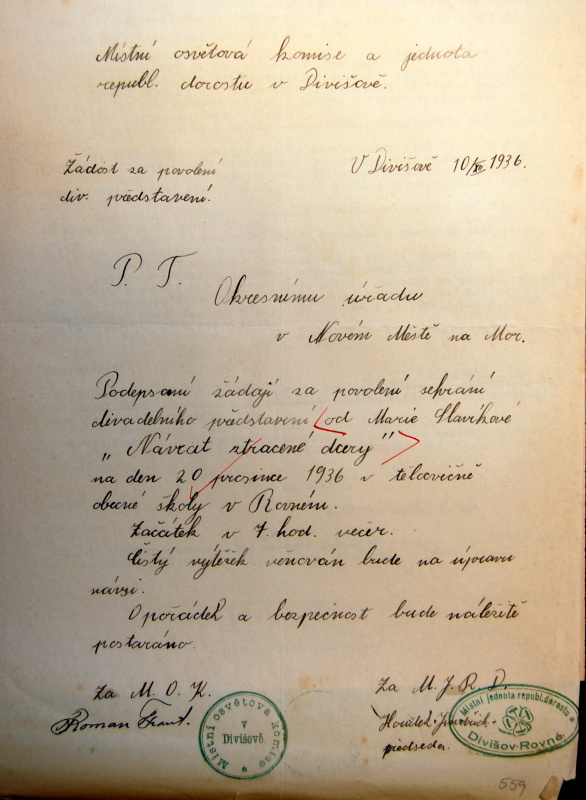 Místní osvětová komise a jednota
republ. dorostu v Divišově.
Žádost za povolení
div. představení.
V Divišově 10/XII 1936.
P. T.
Okresnímu úřadu
v Novém Městě na Mor.
Podepsaní žádají za povolení sehrání
divadelního představení od Marie Slavíkové
„Návrat ztracené dcery"
na den 20 prosince 1936 v tělocvičně
obecné školy v Rovném.
Začátek v 7. hod. večer.
Čistý výtěžek věnován bude na úpravu
návsi.
O pořádek a bezpečnost bude náležitě
postaráno.
Za M. O. K.
Roman Frant.
Místní osvětová komise
v
Divišově
Za M. J. R. D.
předseda.
Místní jednota republ. dorostu
Divišov-Rovné
559